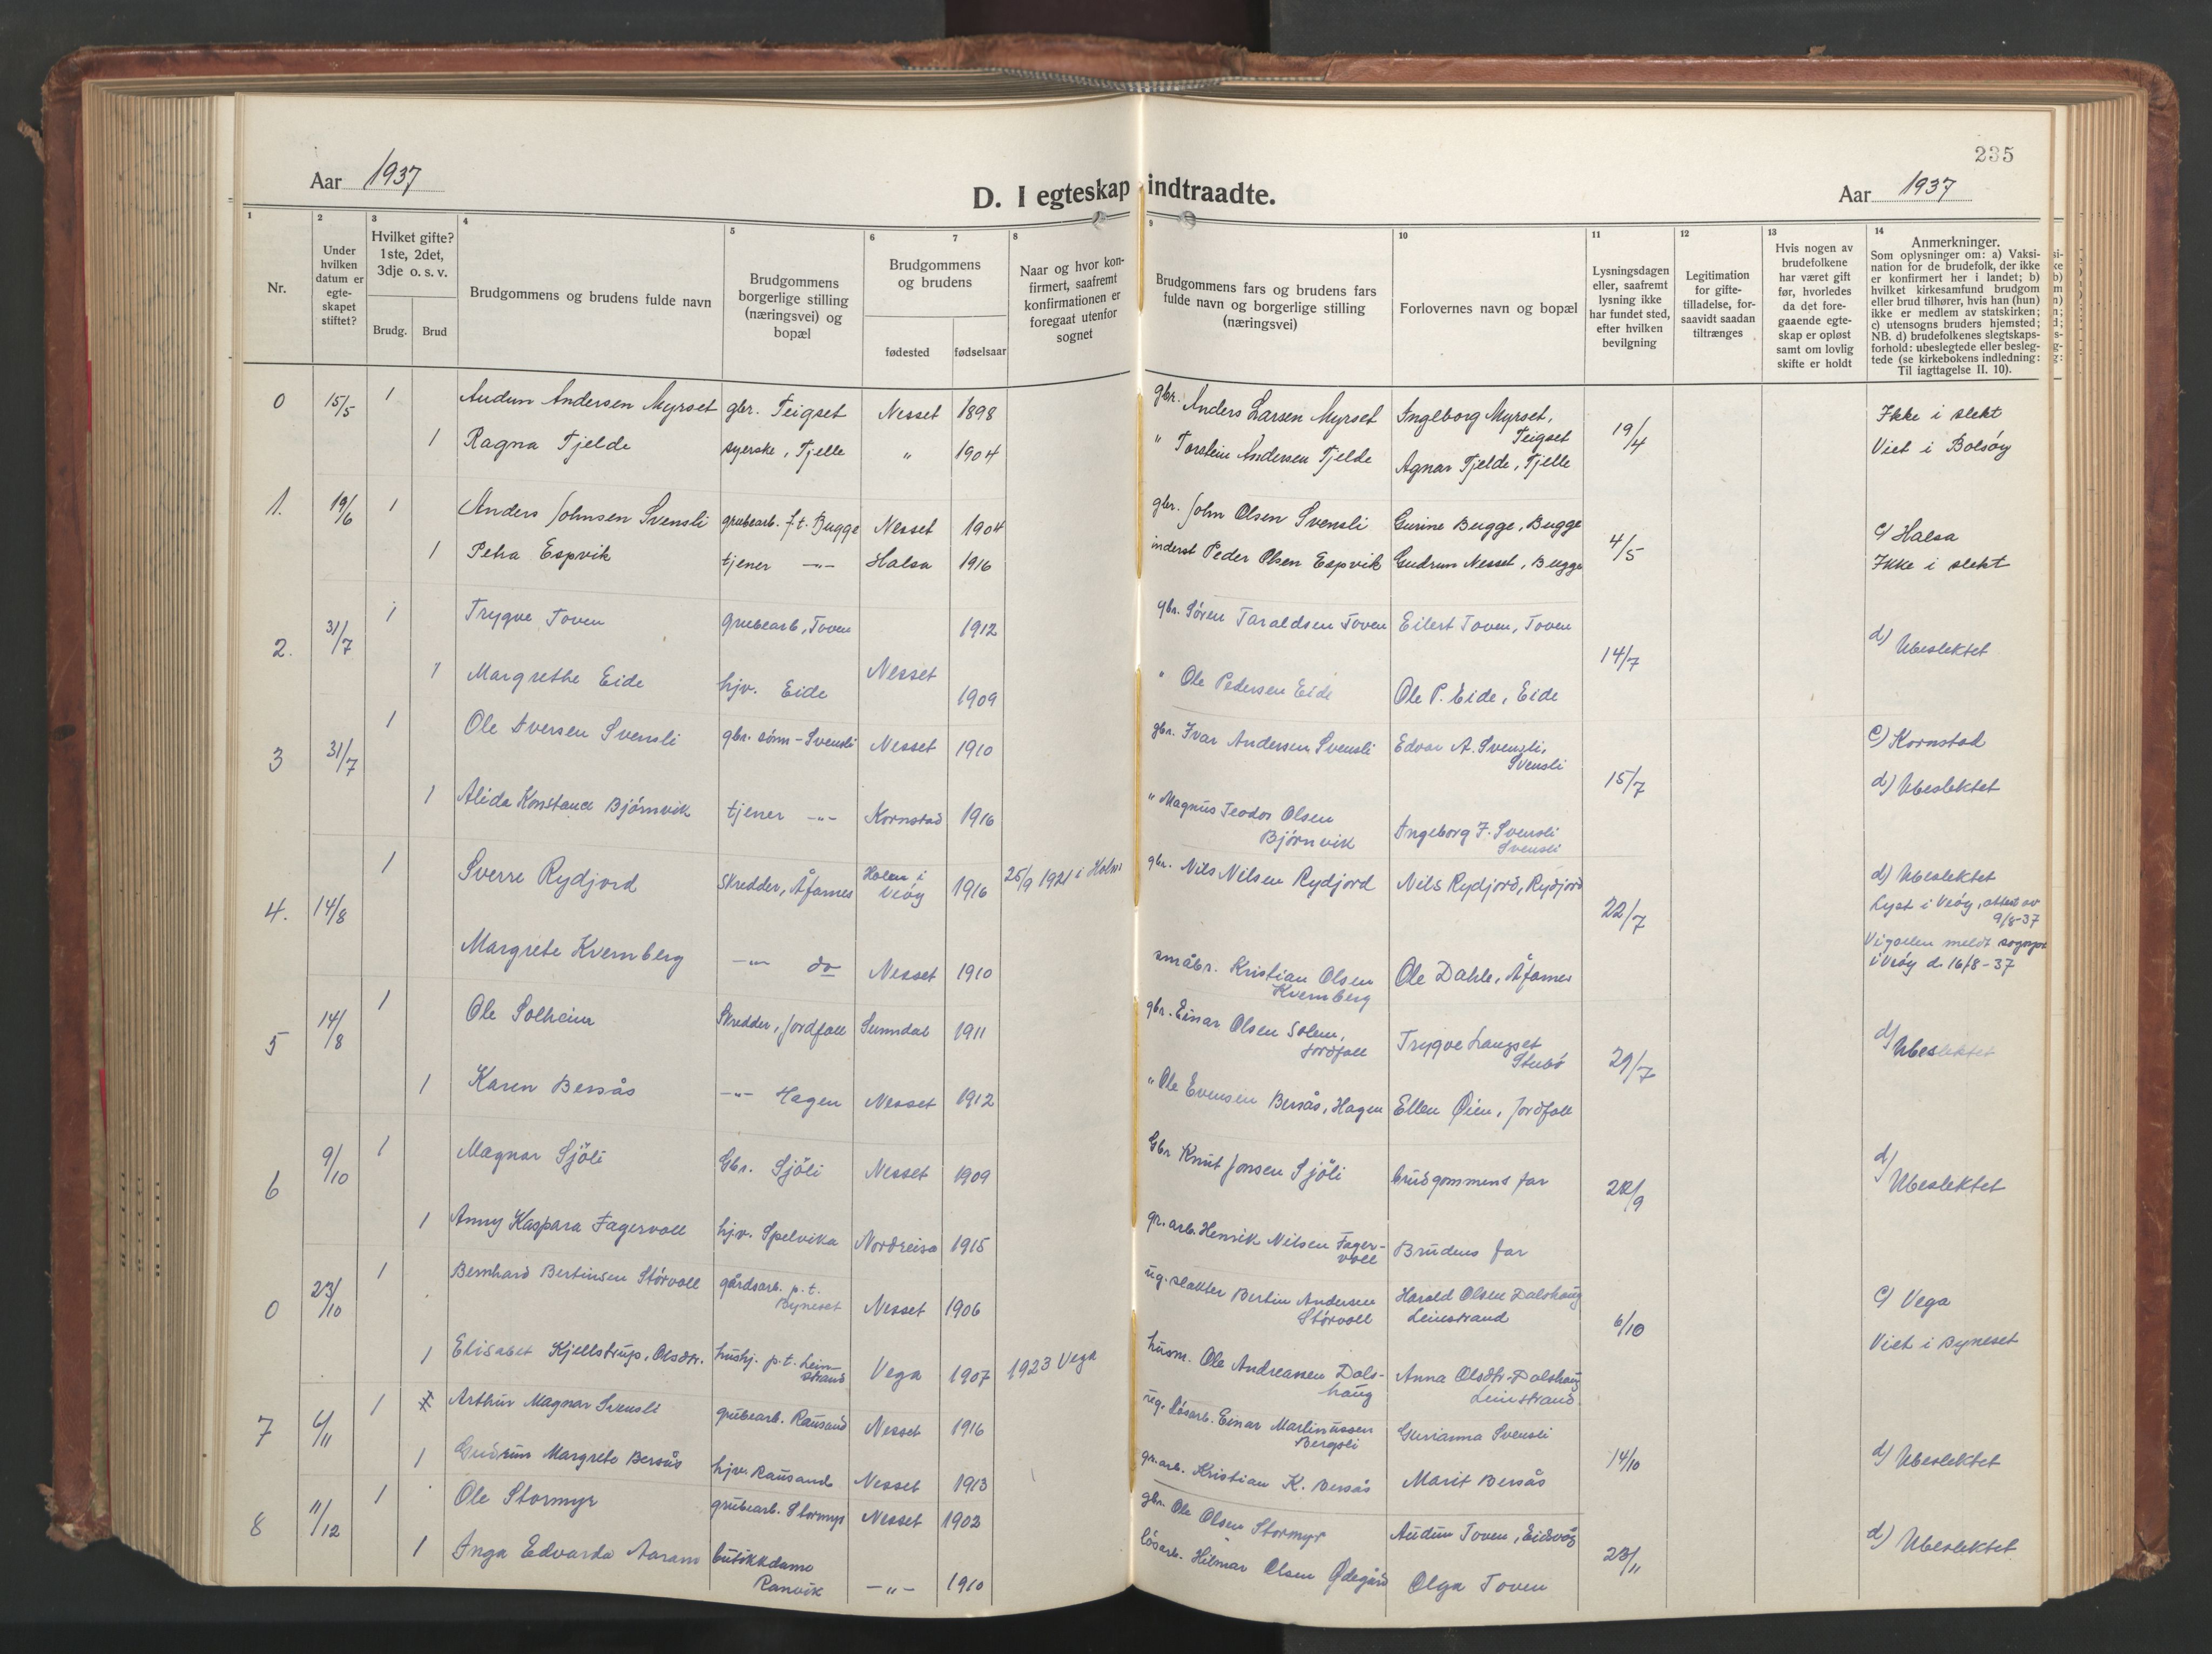 235
Aar 1937
D. I egteskap indtraadte.
Aar 1937
1
2
3
4
5
6
7
8
9
10
11
12
13
14
Nr.
Under
hvilken
datum er
egte-
skapet
stiftet?
Hvilket gifte?
1ste, 2det,
3dje o. s. v.
Brudg.
Brud
Brudgommens og brudens fulde navn
Brudgommens
borgerlige stilling
(næringsvei) og
bopæl
Brudgommens
og brudens
fødested
fødselsaar
Naar og hvor kon-
firmert, saafremt
konfirmationen er
foregaat utenfor
sognet
Brudgommens fars og brudens fars
fulde navn og borgerlige stilling
(næringsvei)
Forlovernes navn og bopæl
Lysningsdagen
eller, saafremt
lysning ikke
har fundet sted,
efter hvilken
bevilgning
Legitimation
for gifte-
tilladelse, for-
saavidt saadan
tiltrænges
Hvis nogen av
brudefolkene
har været gift
før, hvorledes
da det fore-
gaaende egte-
skap er opløst
samt om lovlig
skifte er holdt
Anmerkninger.
Som oplysninger om: a) Vaksi-
nation for de brudefolk, der ikke
er konfirmert her i landet; b)
hvilket kirkesamfund brudgom
eller brud tilhører, hvis han (hun)
ikke er medlem av statskirken;
c) utensogns bruders hjemsted;
NB. d) brudefolkenes slegtskaps-
forhold: ubeslegtede eller besleg-
tede (se kirkebokens indledning:
Til iagttagelse II. 10).
0 15/5 1 Audun Andersen Myrset gbr. Teigset Nesset 1898 gbr. Anders Larsen Myrset Ingeborg Myrset, Teigset 19/4 Ikke i slekt
1 Ragna Tjelde syerske, Tjelle " 1904 " Torstein Andersen Tjelde Agnar Tjelde, Tjelle Viet i Bolsöy
1. 19/6 1 Anders Johnsen Svensli grubearb. f.t. Bugge Nesset 1904 gbr. John Olsen Svensli Gurine Bugge, Bugge 4/5 c/ Halsa
1 Petra Espvik tjener -"- Halsa 1916 inderst Peder Olsen Espvik Gudrun Nesset, Bugge Ikke i slekt
2. 31/7 1 Trygve Toven grubearb, Toven 1912 gbr. Sören Taraldsen Toven Eilert Toven, Toven 14/7 d) Ubeslektet
1 Margrethe Eide hjv. Eide Nesset 1909 " Ole Pedersen Eide Ole P. Eide, Eide
3 31/7 1 Ole Iversen Svensli gbr. sönn - Svensli Nesset 1910 gbr. Ivar Andersen Svensli Edvar A. Svensli, Svensli 15/7 c) Kornstad
1 Alida Konstance Björnvik tjener -"- Kornstad 1916 " Magnus Teodor Olsen Björnvik Ingeborg I. Svensli Svensli d) Ubeslektet
4. 14/8 1 Sverre Rydjord Skredder, Åfarnes Holm i Veöy 1916 25/9 1921 i Holm gbr. Nils Nilsen Rydjord Nils Rydjord, Rydjord 22/7 d) Ubeslektet
Lyst i Veöy, attest av
9/8-37
Margrete Kvernberg -"- do Nesset 1910 småbr. Kristian Olsen Kvernberg Ole Dahle, Åfarnes Vigselen meldt sognepr
i Veöy d. 16/8-37
5 14/8 1 Ole Solheim Skredder, Jordfall Sunndal 1911 gbr. Einar Olsen Solem, Jordfall Trygve Langset Stubö 29/7 d) Ubeslektet
1 Karen Bersås -"- Hagen Nesset 1912 " Ole Evensen Bersås, Hagen Ellen Öien, Jordfall
6 9/10 1 Magnar Sjöli Gbr. Sjöli Nesset 1909 Gbr Knut Jonsen Sjöli brudgommens far 22/9 d) Ubeslektet
1 Anny Kaspara Fagervoll hjv. Spelvika Nordreisa 1915 gr.arb. Henrik Nilsen Fager-voll Brudens far
0 23/10 1 Bernhard Bertinsen Störvoll gårdsarb. p.t. Byneset Nesset 1906 ug. slakter Bertin Andersen Störvoll Harald Olsen Dalshaug Leinstrand 6/10 c/ Vega
1 Elisabet Kjellstrup, Olsdtr. hushj. p.t. Lein-strand Vega 1907 1923 Vega husm. Ole Andreassen Dals-haug Anna Olsdtr. Dalshaug Leinstrand Viet i Byneset
7 6/11 1 Arthur Magnar Svensli grubearb. Rausand Nesset 1916 ug. lösarb. Einar Martinussen Bergsli Gurianna Svensli 14/10 d) Ubeslektet
1 Gudrun Margrete Bersås hjv. Rausand Nesset 1913 gr.arb. Kristian K. Bersås Marit Bersås
8 11/12 1 Ole Stormyr grubearb. Stormyr Nesset 1902 gbr. Ole Olsen Stormyr Audun Toven, Eidsvåg 23/11 d) Ubeslektet
1 Inga Edvarda Aaram butikkdame Ranvik -"- 1910 lösarb. Hilmar Olsen Ödegård Olga Toven